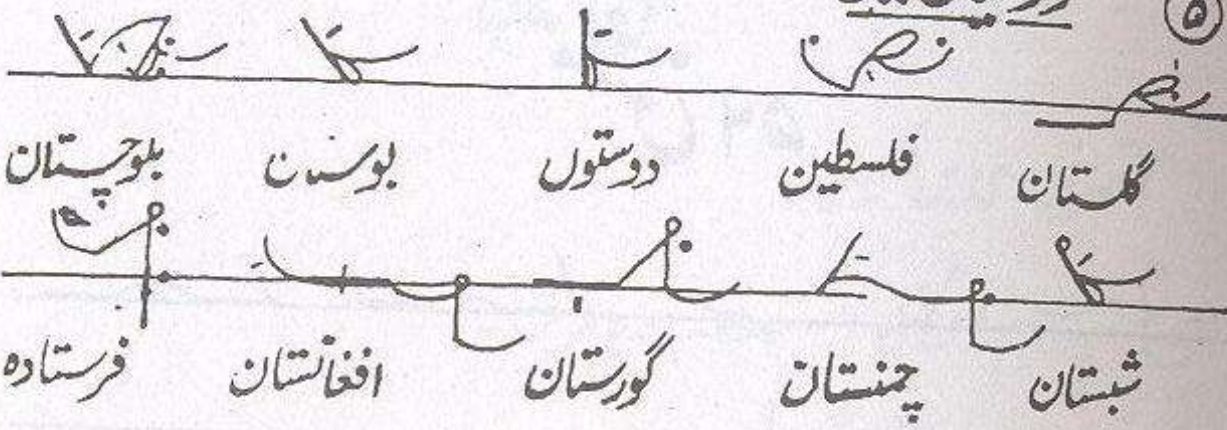 ۵
گلستان فلسطین دوستوں بوستان بلوچستان
شبستان چمنستان گورستان افغانستان فرستادہ